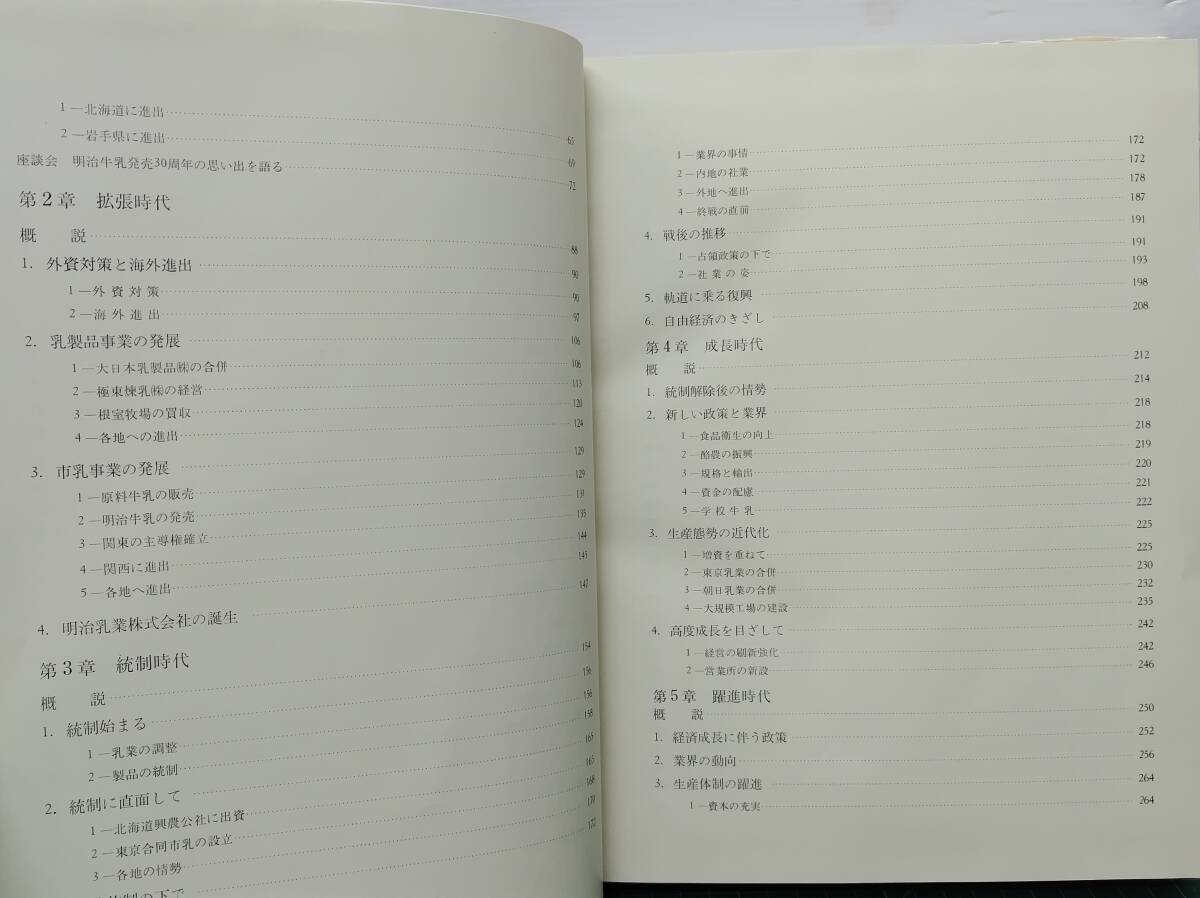 1—北海道に進出 65
2—岩手県に進出 69
座談会　明治牛乳発売30周年の思い出を語る 72
第2章　拡張時代
概　説 88
1. 外資対策と海外進出 90
1—外資対策 90
2—海外進出 97
2. 乳製品事業の発展 106
1—大日本乳製品㈱の合併 106
2—極東煉乳㈱の経営 113
3—根室牧場の買収 120
4—各地への進出 124
3. 市乳事業の発展 129
1—原料牛乳の販売 129
2—明治牛乳の発売 131
3—関東の主導権確立 135
4—関西に進出 144
5—各地へ進出 145
4. 明治乳業株式会社の誕生 147
第3章　統制時代
概　説 154
1. 統制始まる 156
1—乳業の調整 156
2—製品の統制 158
2. 統制に直面して 165
1—北海道興農公社に出資 165
2—東京合同市乳の設立 168
3—各地の情勢 170
制の下で 172
1—業界の事情 172
2—内地の社業 172
3—外地へ進出 178
4—終戦の直前 187
4. 戦後の推移 191
1—占領政策の下で 191
2—社業の姿 193
5. 軌道に乗る復興 198
6. 自由経済のきざし 208
第4章　成長時代
概　説 212
1. 統制解除後の情勢 214
2. 新しい政策と業界 218
1—食品衛生の向上 218
2—酪農の振興 219
3—規格と輸出 220
4—資金の配慮 221
5—学校牛乳 222
3. 生産態勢の近代化 225
1—増資を重ねて 225
2—東京乳業の合併 230
3—朝日乳業の合併 232
4—大規模工場の建設 235
4. 高度成長を目ざして 242
1—経営の刷新強化 242
2—営業所の新設 246
第5章　躍進時代
概　説 250
1. 経済成長に伴う政策 252
2. 業界の動向 256
3. 生産体制の躍進 264
1—資本の充実 264